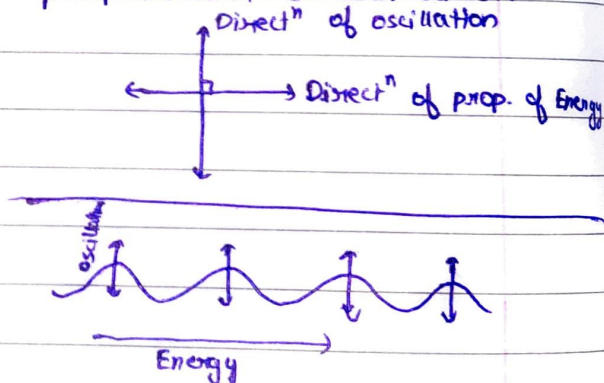 Directⁿ of oscillation
Directⁿ of prop. of Energy
oscillation
Energy